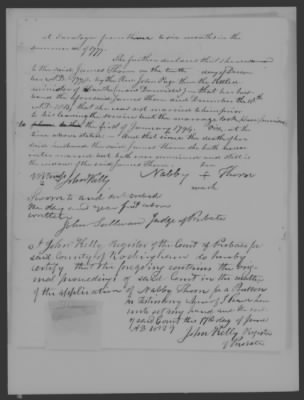 at Saratoga from three to six months in the
summer of 1777.
She further declares that she was married
to the said James Thorn on the tenth day of Decem
ber A.D. 1779 by the Rev. John Page then the settled
minister of Hawke (now Danville) that her hus
band the aforesaid James Thorn died December the 10th
that she was not married to him prior
to his leaving the service but the marriage took place previous
to the first of January 1794. Viz. at the
time above stated. And that since the death of her
said husband the said James Thorn she hath never
intermarried but hath ever remained and still is
the widow of the said James Thorn her
Witness John Kelly Nabby + Thorn
mark
Sworn to and subscribed
the day and year first above
written
John Sullivan Judge of Probate
I John Kelly Register of the Court of Probate for
said County of Rockingham do hereby
certify that the foregoing contains the orig
inal proceedings of said Court in the matter
of the application of Nabby Thorn for a Pension
In testimony whereof I have here
unto set my hand and the seal
of said Court this 17th day of June
John Kelly Register
of Probate